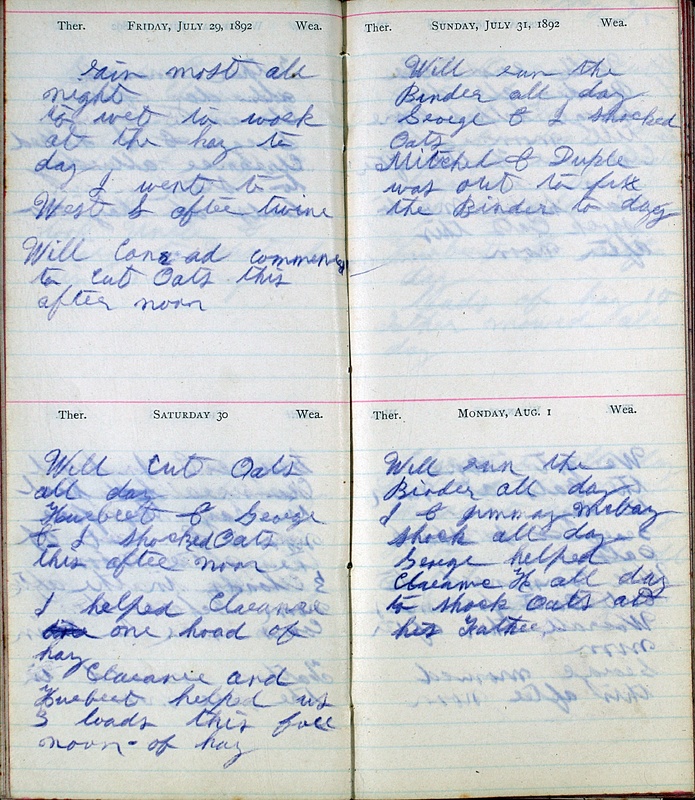 Ther. FRIDAY, JULY 29, 1892 Wea.
rain most all
night
to wet to work
at the hay to
day
I went to
West S after twine
Will Conrad commency
to cut Oats this
after noon
Ther. SATURDAY 30 Wea.
Will Cut Oats
all day
Huebert & George
& I shocked Oats
this after noon
I helped Clearance
one hoad of
hay
Clearance and
Huebert helped us
3 loads this fore
noon - of hay
Ther. SUNDAY, JULY 31, 1892 Wea.
Will run the
Binder all day
George & I shocked
Oats
Mitchel & Duple
was out to fix
the Binder to day
Ther. MONDAY, AUG. 1 Wea.
Will run the
Binder all day
I & Jimmay
shock all day
George helped
Clearance H all day
to shock Oats at
his Father